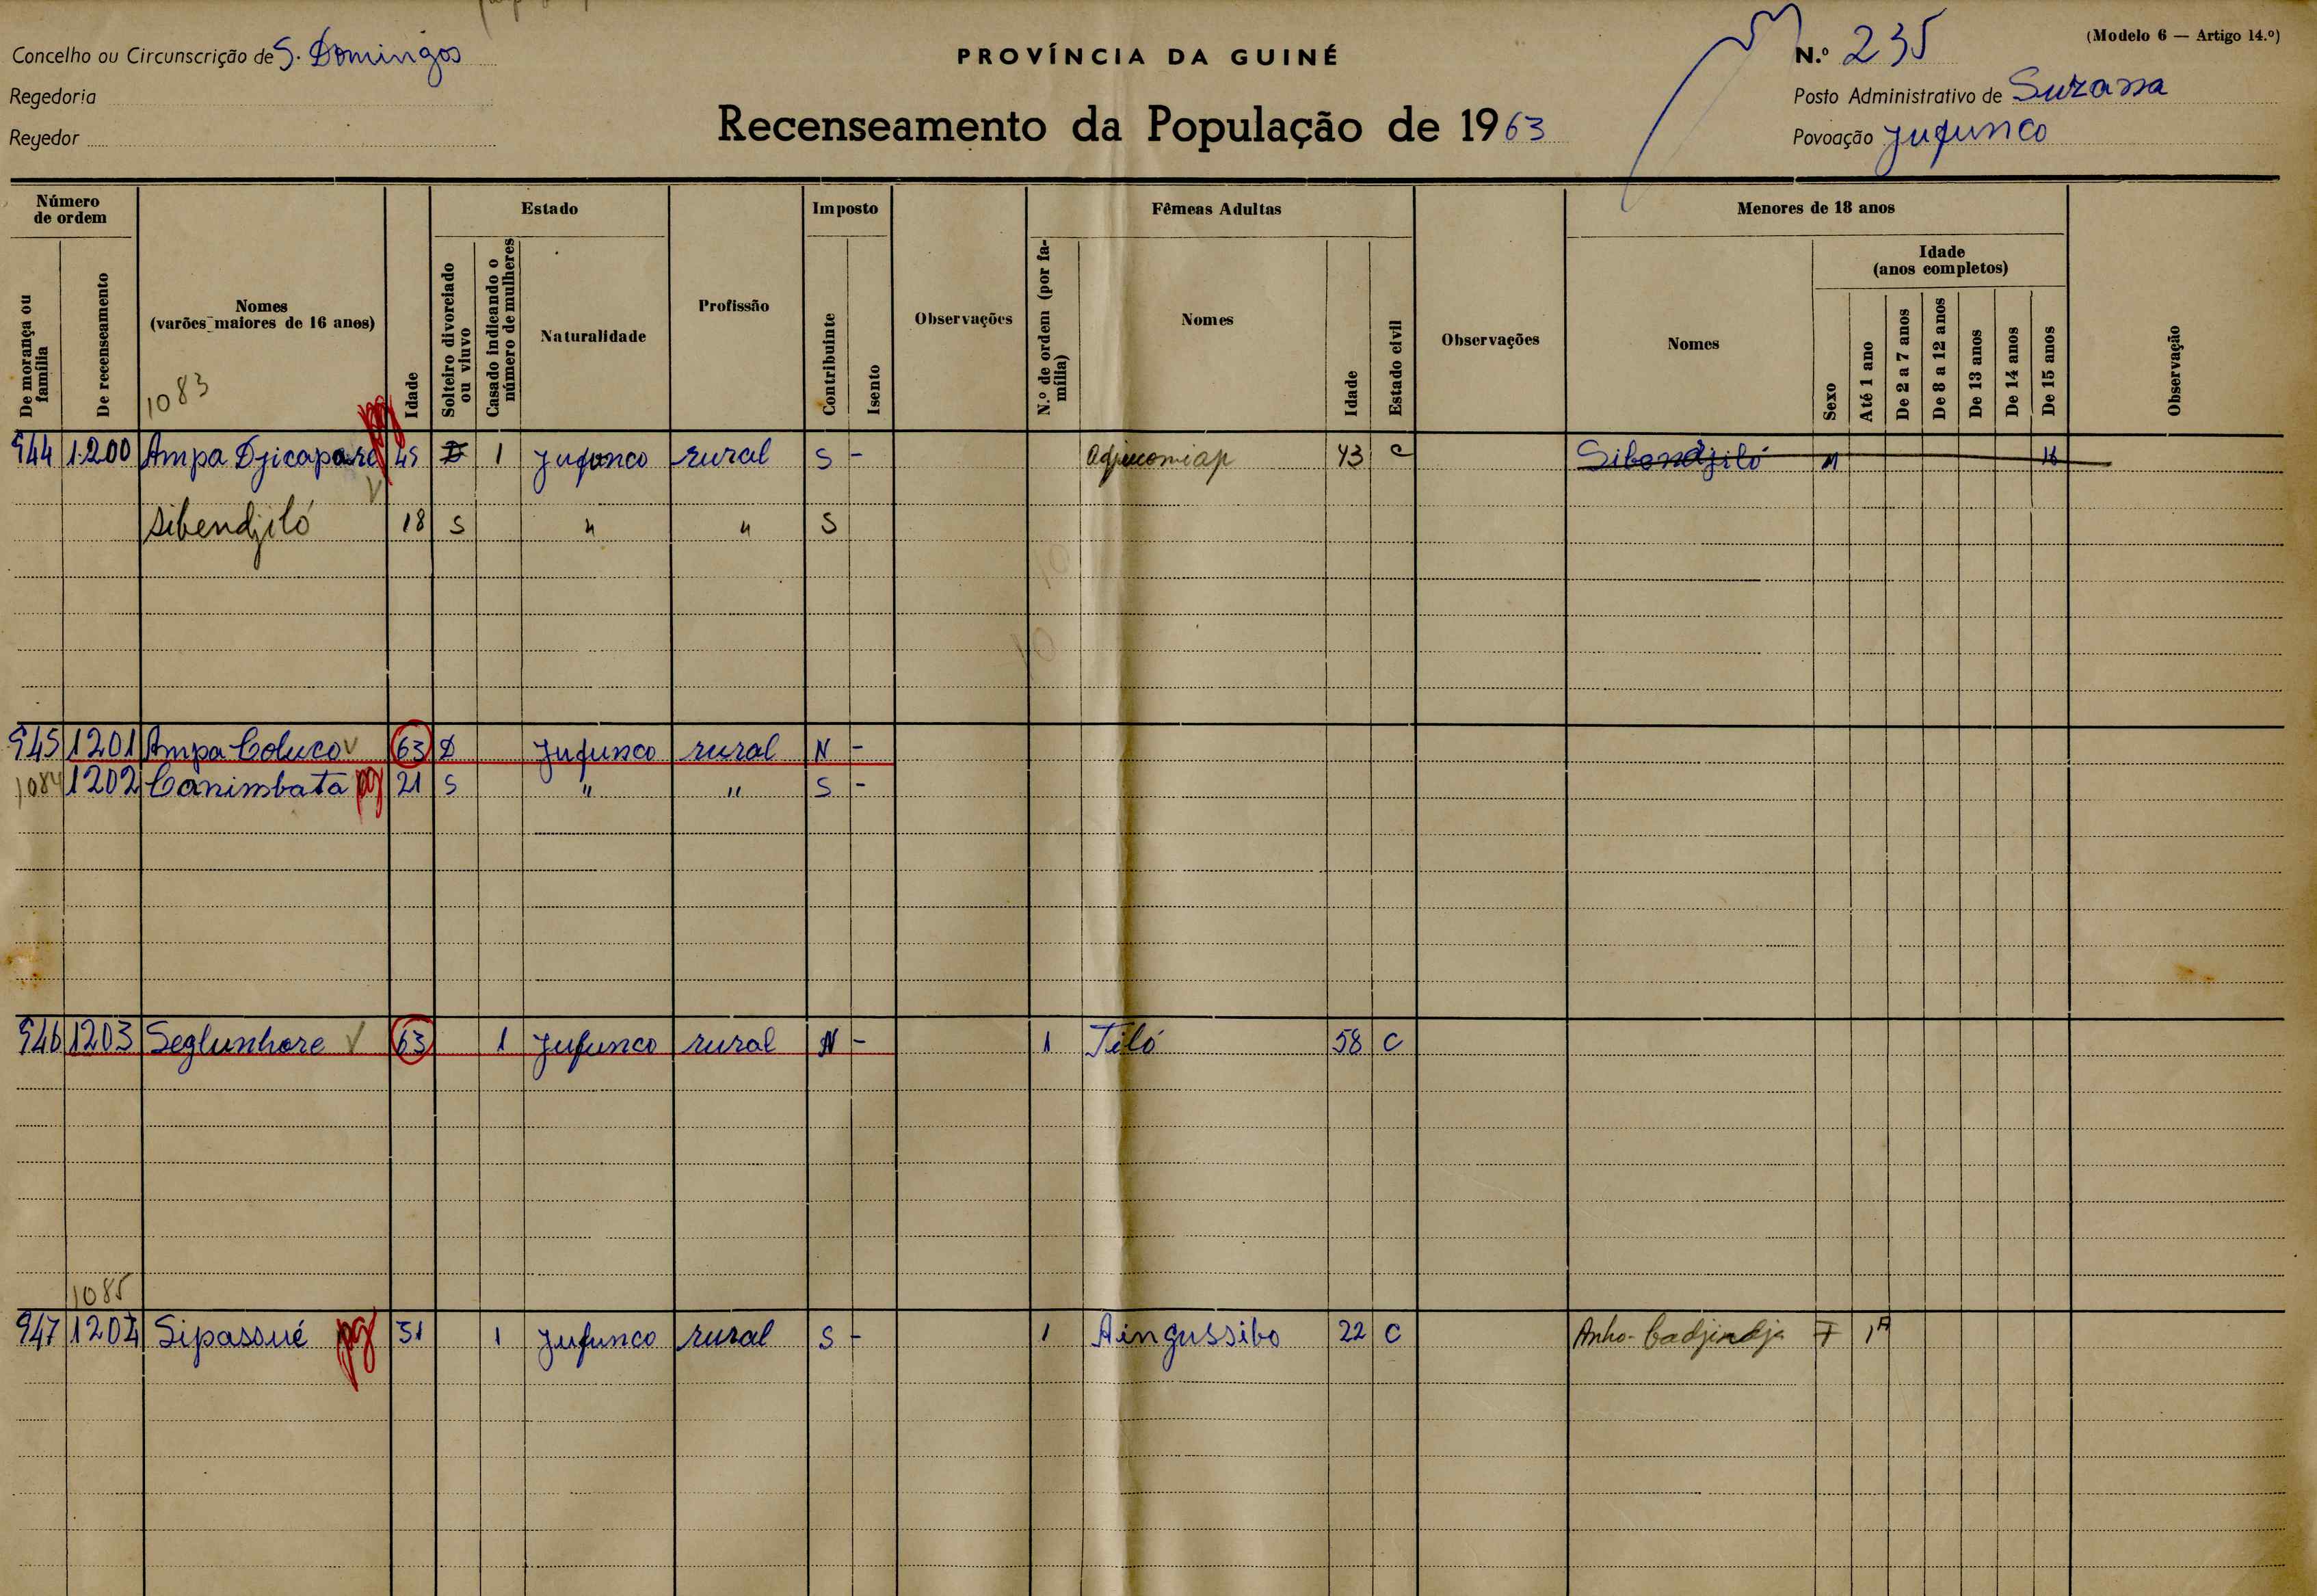 Concelho ou Circunscrição de S. Domingos
Regedoria
Regedor
PROVÍNCIA DA GUINÉ
Recenseamento da População de 1963
(Modelo 6 — Artigo 14.º)
N.º 235
Posto Administrativo de Suzana
Povoação Jufunco
Número de ordem
De morança ou família
De recenseamento
Nomes
(varões maiores de 16 anos)
1083
Idade
Estado
Solteiro divorciado ou viuvo
Casado indicando o número de mulheres
Naturalidade
Profissão
Imposto
Contribuinte
Isento
Observações
Fêmeas Adultas
N.º de ordem (por família)
Nomes
Idade
Estado civil
Observações
Menores de 18 anos
Nomes
Sexo
Idade
(anos completos)
Até 1 ano
De 2 a 7 anos
De 8 a 12 anos
De 13 anos
De 14 anos
De 15 anos
Observação
944 1200 Ampa Djicapare pg 45 D 1 Jufunco rural S - 43 C Sibendjiló M 16
Sibendjiló 18 S " " S
945 1201 Ampa Coluco 63 D Jufunco rural N -
1084 1202 Canimbata pg 21 S " " S -
946 1203 Seglunhare 63 1 Jufunco rural N - 1 Tiló 58 C
1085
947 1204 Sipasoué pg 31 1 Jufunco rural S - 1 Aingussibo 22 C Anho-Cadjindja F 1A